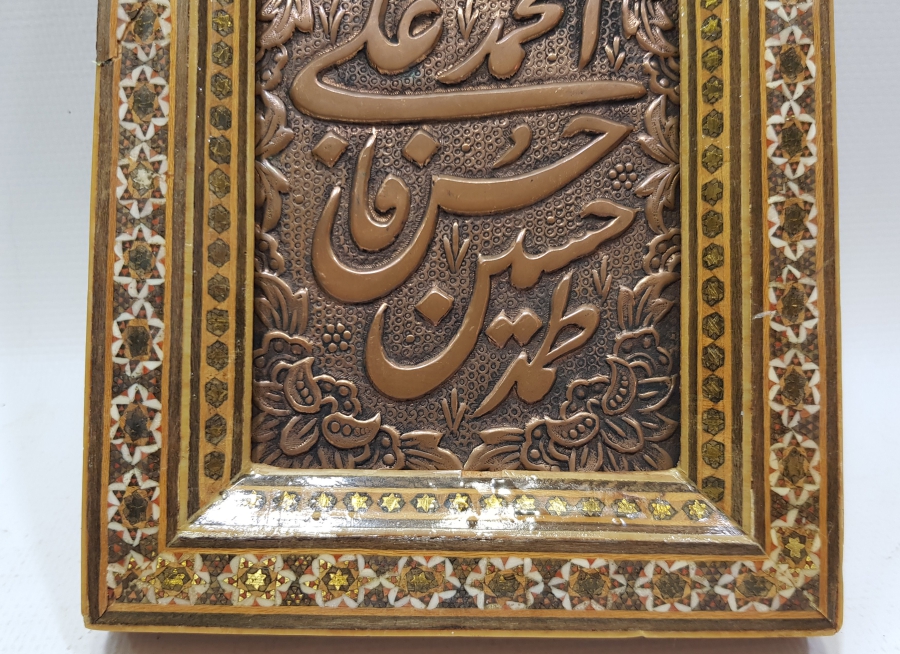 محمد علی
حسن فا
حسین
طمه